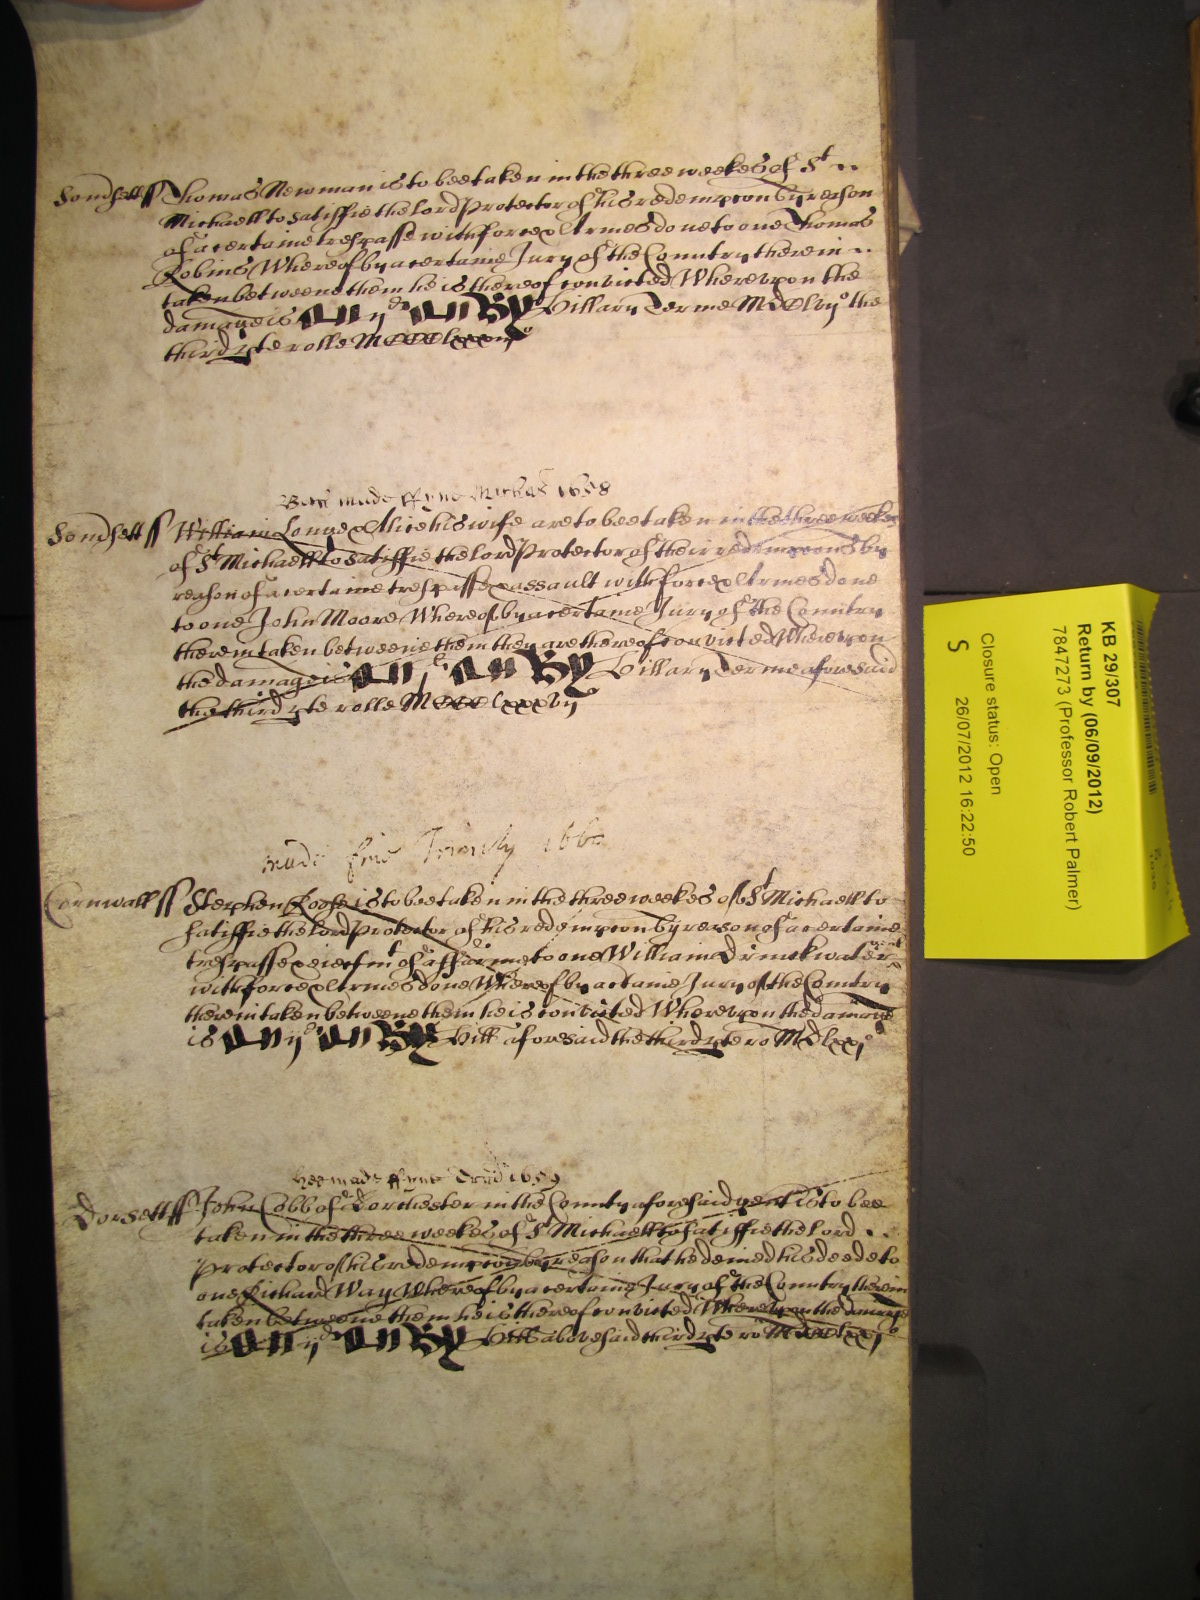 Somersett ss Thomas Newman is to bee taken in the three weekes of St ..
Michaell to satisffie the Lord Protector of his redempcon by reason
of a certaine trespasse with force & Armes done to one Thomas
Robins Whereof by a certaine Jury of the Country therein ..
taken betweene them he is thereof convicted Whereupon the
damage is
Hillary Terme MDClvijo the
third pte rolle
made ffyne Michas 1658
Somersett ss William Longe & Alice his wife are to bee taken in the three weekes
of St Michaell to satisffie the Lord Protector of their redempcons by
reason of a certaine trespasse & assault with force & Armes done
to one John Moore Whereof by a certaine Jury of the Country
therein taken betweene them they are thereof convicted Whereupon
the damage is
Hillary Terme aforesaid
the third pte rolle
made fine Trinity 1660
Cornwall ss Stephen Roose is to bee taken in the three weekes of St Michaell to
satisffie the Lord Protector of his redempcon by reason of a certaine
trespasse & eiectmt of a ffarme to one William Drinckwater
with force & Armes done Whereof by a ctaine Jury of the Country
therein taken betweene them he is convicted Whereupon the damage
is
Hill aforesaid the third pte ro MDlxxjo
hee made ffyne 1659
Dorsett ss John Cobb of Dorchester in the County aforesaid gent is to bee
taken in the three weekes of St Michaell to satisffie the Lord ..
Protector of his redempcon by reason that he denied his deede to
one Richard Way Whereof by a certaine Jury of the Country therein
taken betweene them he is thereof convicted Whereupon the damage
is
Hill abovesaid third pte ro
KB 29/307
Return by (06/09/2012)
7847273 (Professor Robert Palmer)
Closure status: Open
S 26/07/2012 16:22:50